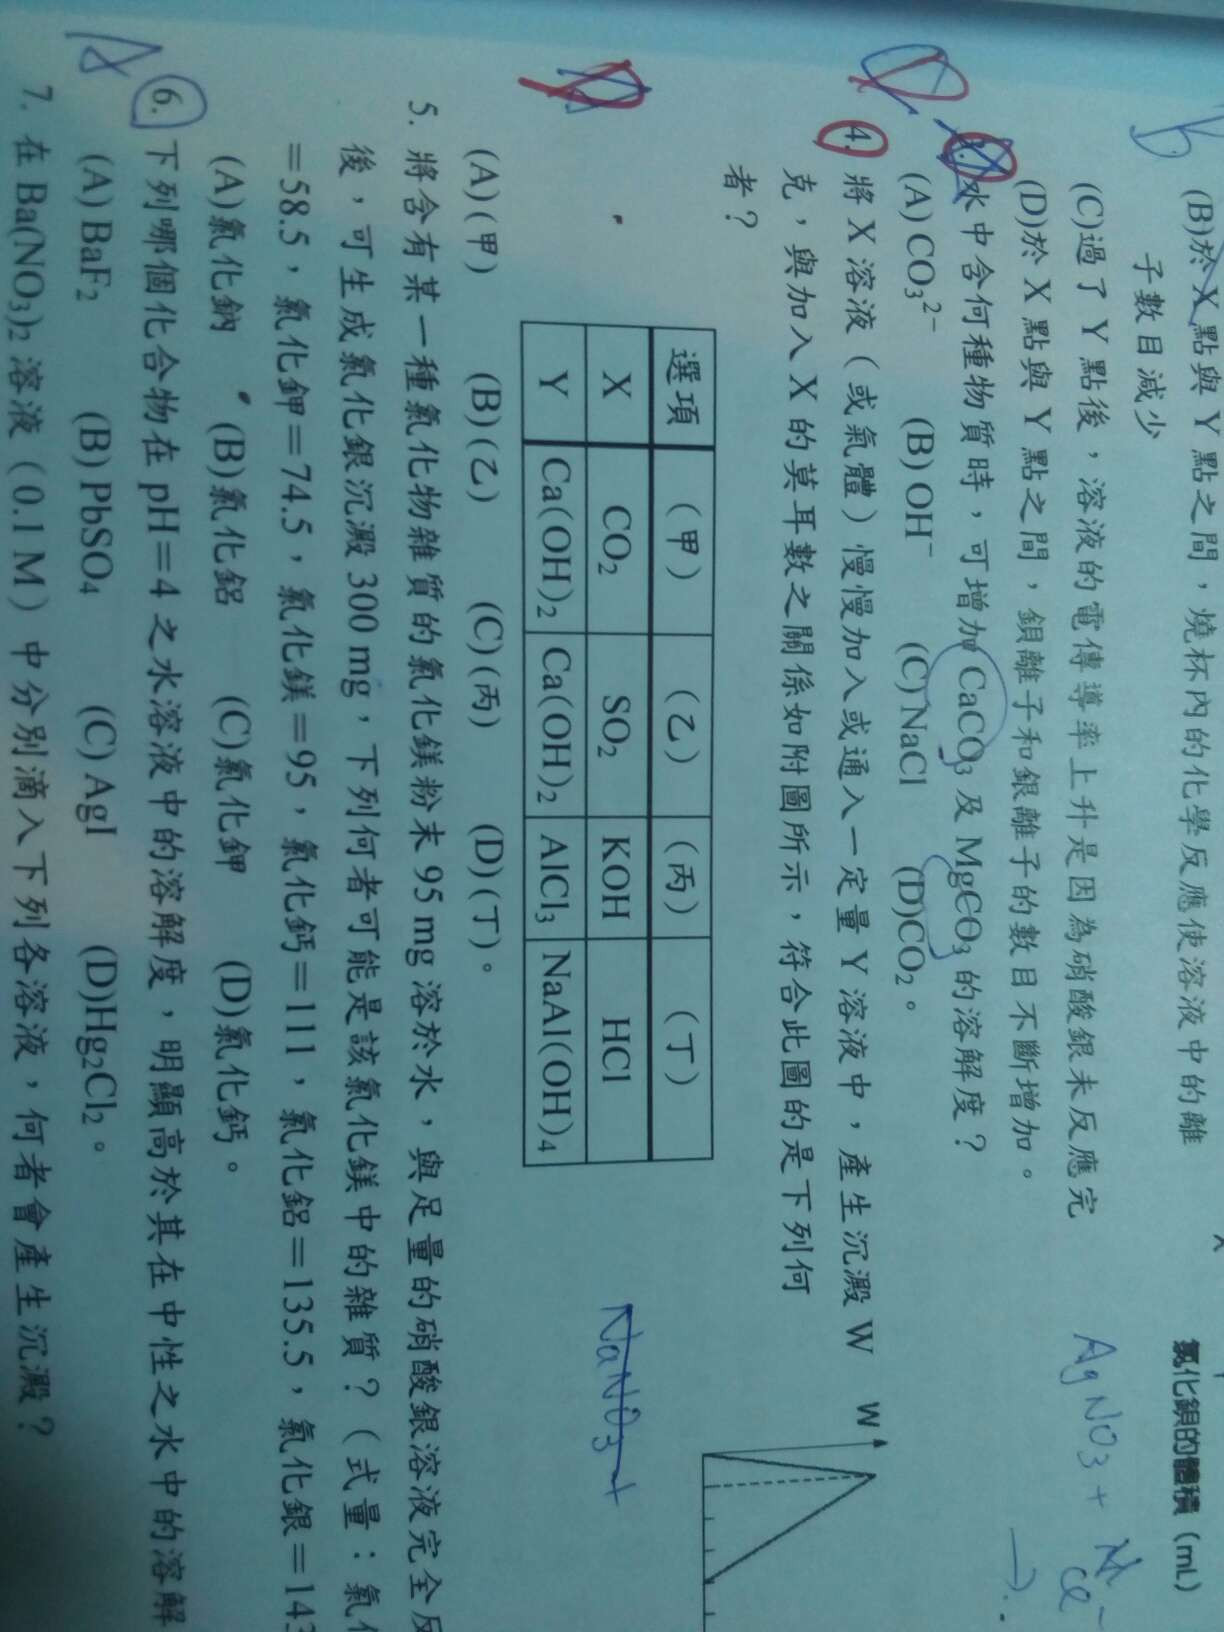 (B)於 X 點與 Y 點之間，燒杯內的化學反應使溶液中的離
子數目減少
(C)過了 Y 點後，溶液的電傳導率上升是因為硝酸銀未反應完
(D)於 X 點與 Y 點之間，鋇離子和銀離子的數目不斷增加。
氯化鋇的體積 (mL)
B
AgNO3 +
Cl-
水中含何種物質時，可增加 CaCO3 及 MgCO3 的溶解度？
(A) CO3²⁻ (B) OH⁻ (C) NaCl (D)CO2。
4. 將 X 溶液（或氣體）慢慢加入或通入一定量 Y 溶液中，產生沉澱 W
克，與加入 X 的莫耳數之關係如附圖所示，符合此圖的是下列何
者？
W
選項 （甲） （乙） （丙） （丁）
X CO2 SO2 KOH HCl
Y Ca(OH)2 Ca(OH)2 AlCl3 NaAl(OH)4
NaNO3 +
(A)(甲) (B)(乙) (C)(丙) (D)(丁)。
5. 將含有某一種氯化物雜質的氯化鎂粉末 95 mg 溶於水，與足量的硝酸銀溶液完全反
後，可生成氯化銀沉澱 300 mg，下列何者可能是該氯化鎂中的雜質？（式量：氯化
＝58.5，氯化鉀＝74.5，氯化鎂＝95，氯化鈣＝111，氯化鋁＝135.5，氯化銀＝143
(A)氯化鈉 (B)氯化鋁 (C)氯化鉀 (D)氯化鈣。
A
6. 下列哪個化合物在 pH＝4 之水溶液中的溶解度，明顯高於其在中性之水中的溶解
(A) BaF2 (B) PbSO4 (C) AgI (D)Hg2Cl2。
7. 在 Ba(NO3)2 溶液（0.1 M）中分別滴入下列各溶液，何者會產生沉澱？